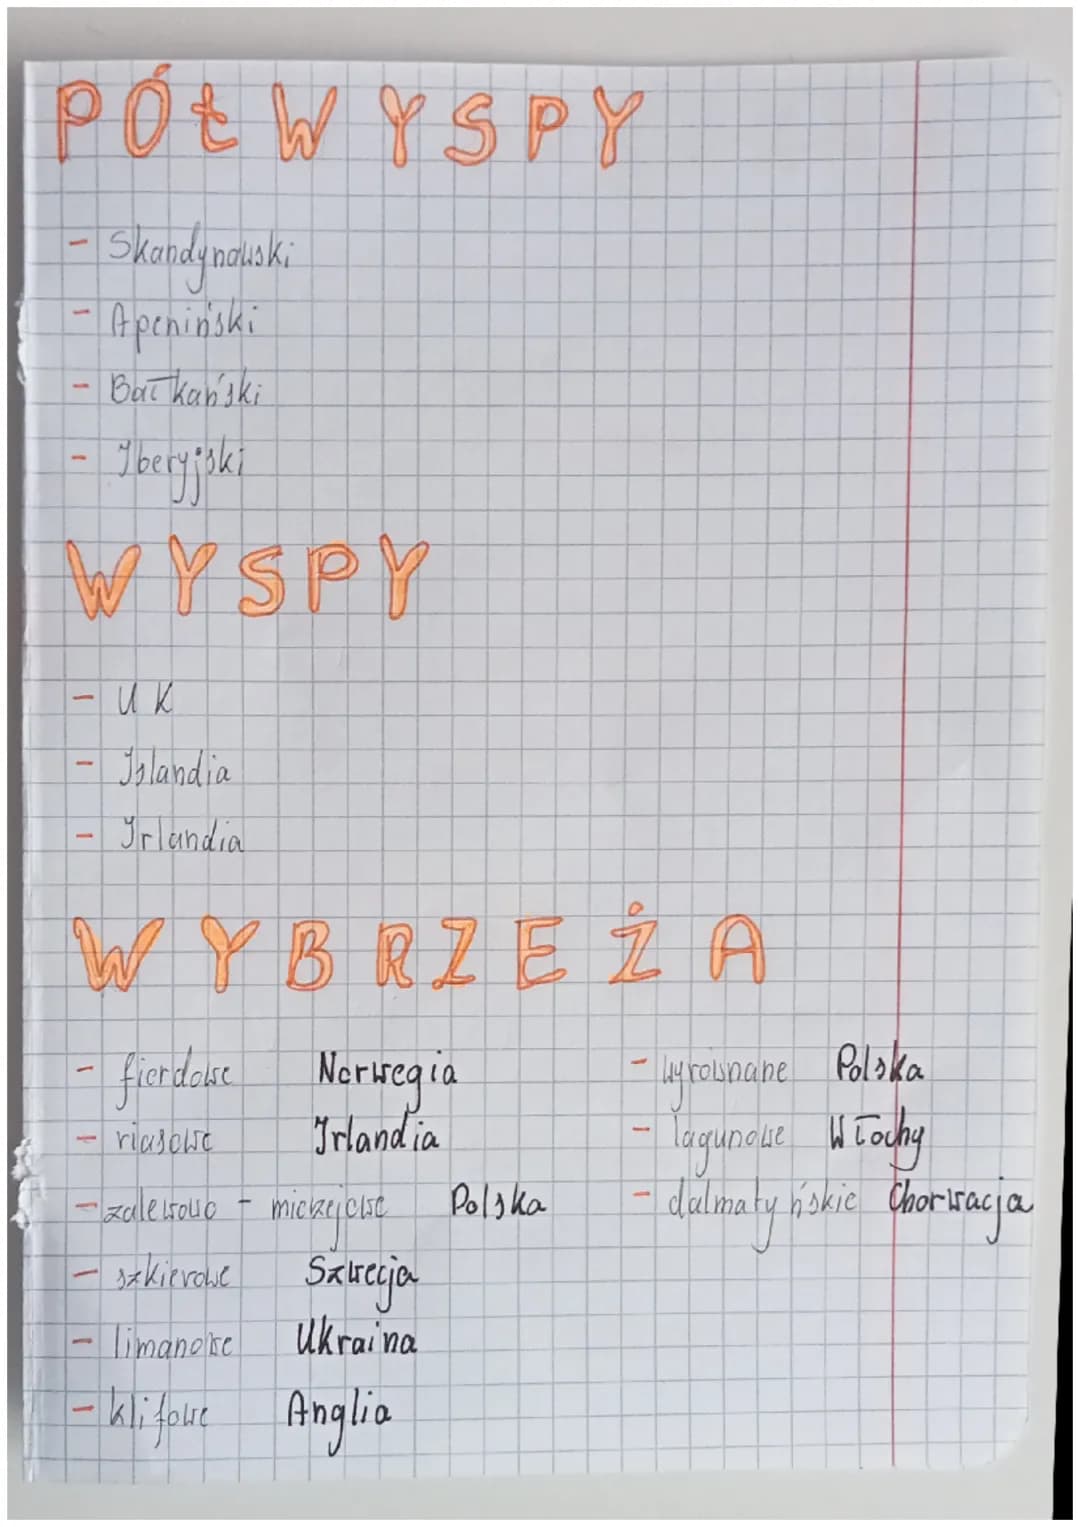 PÓŁWYSPY
- Skandynawski
- Apeniński
- Bałkański
- Iberyjski
WYSPY
- UK
- Islandia
- Irlandia
WYBRZEŻA
- fierdowe Norwegia
- riasowe Irlandia
- zalewowo - mierzejowe Polska
- szkierowe Szwecja
- limanowe Ukraina
- klifowe Anglia
- wyrównane Polska
- lagunowe Włochy
- dalmatyńskie Chorwacja